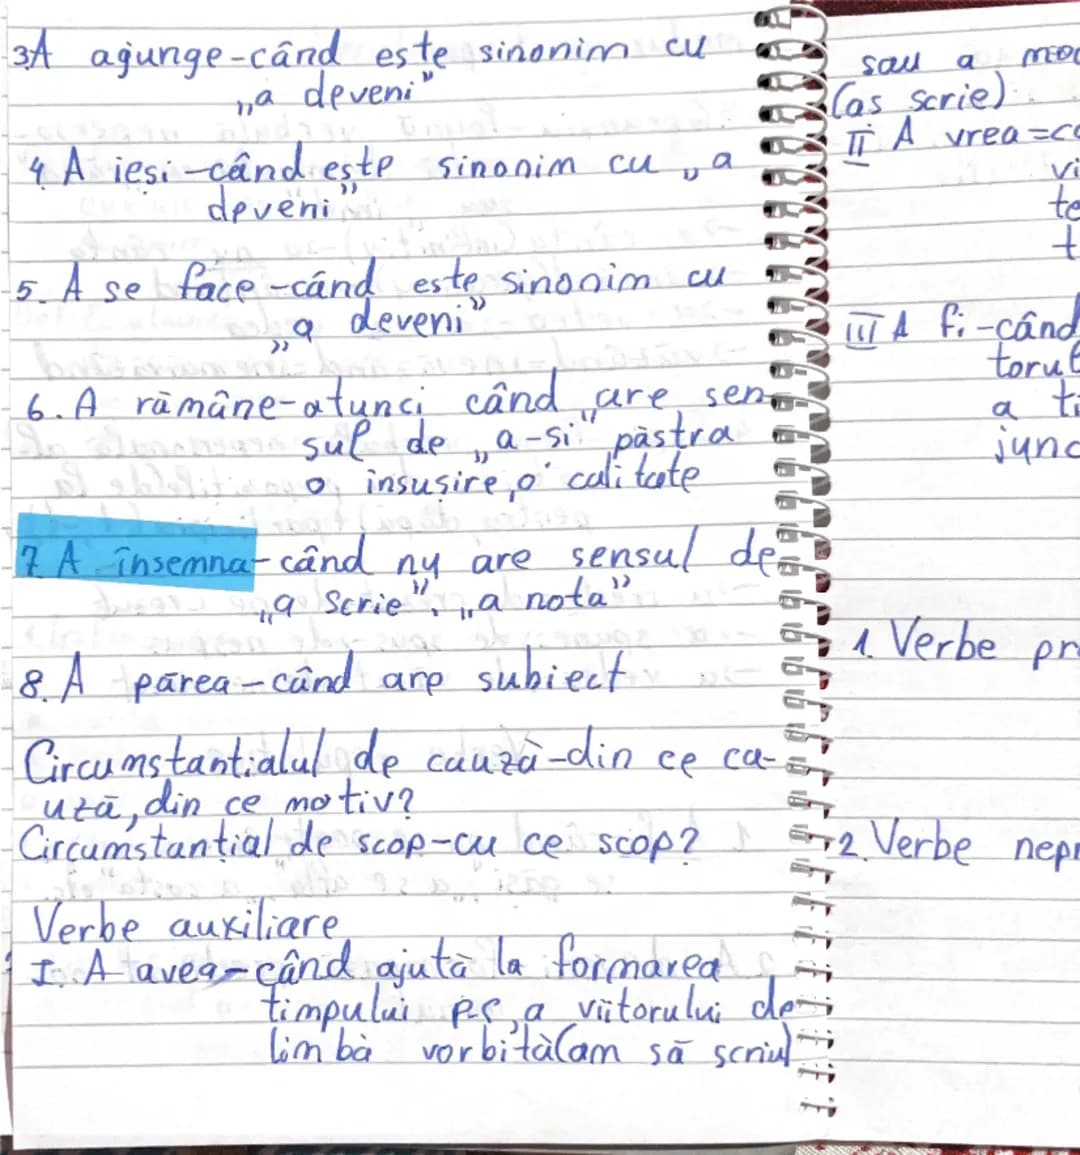 3A ajunge-când este sinonim cu
„a deveni"
4. A ieși-când este sinonim cu „a
deveni"
5. A se face-când este sinonim cu
„a deveni"
6. A rămâne-atunci când are sen-
sul de „a-si" păstra
o insușire, o calitate
7. A însemna-când nu are sensul de
„a scrie", „a nota"
8. A părea-când are subiect
Circumstantialul de cauză-din ce ca-
uză, din ce motiv?
Circumstanțial de scop-cu ce scop?
Verbe auxiliare
I. A avea-când ajută la formarea
timpului p.c, a viitorului de
limbă vorbită(am să scriu)
sau a
(as scrie)
II A vrea=
III A fi-când
a
1. Verbe
2. Verbe